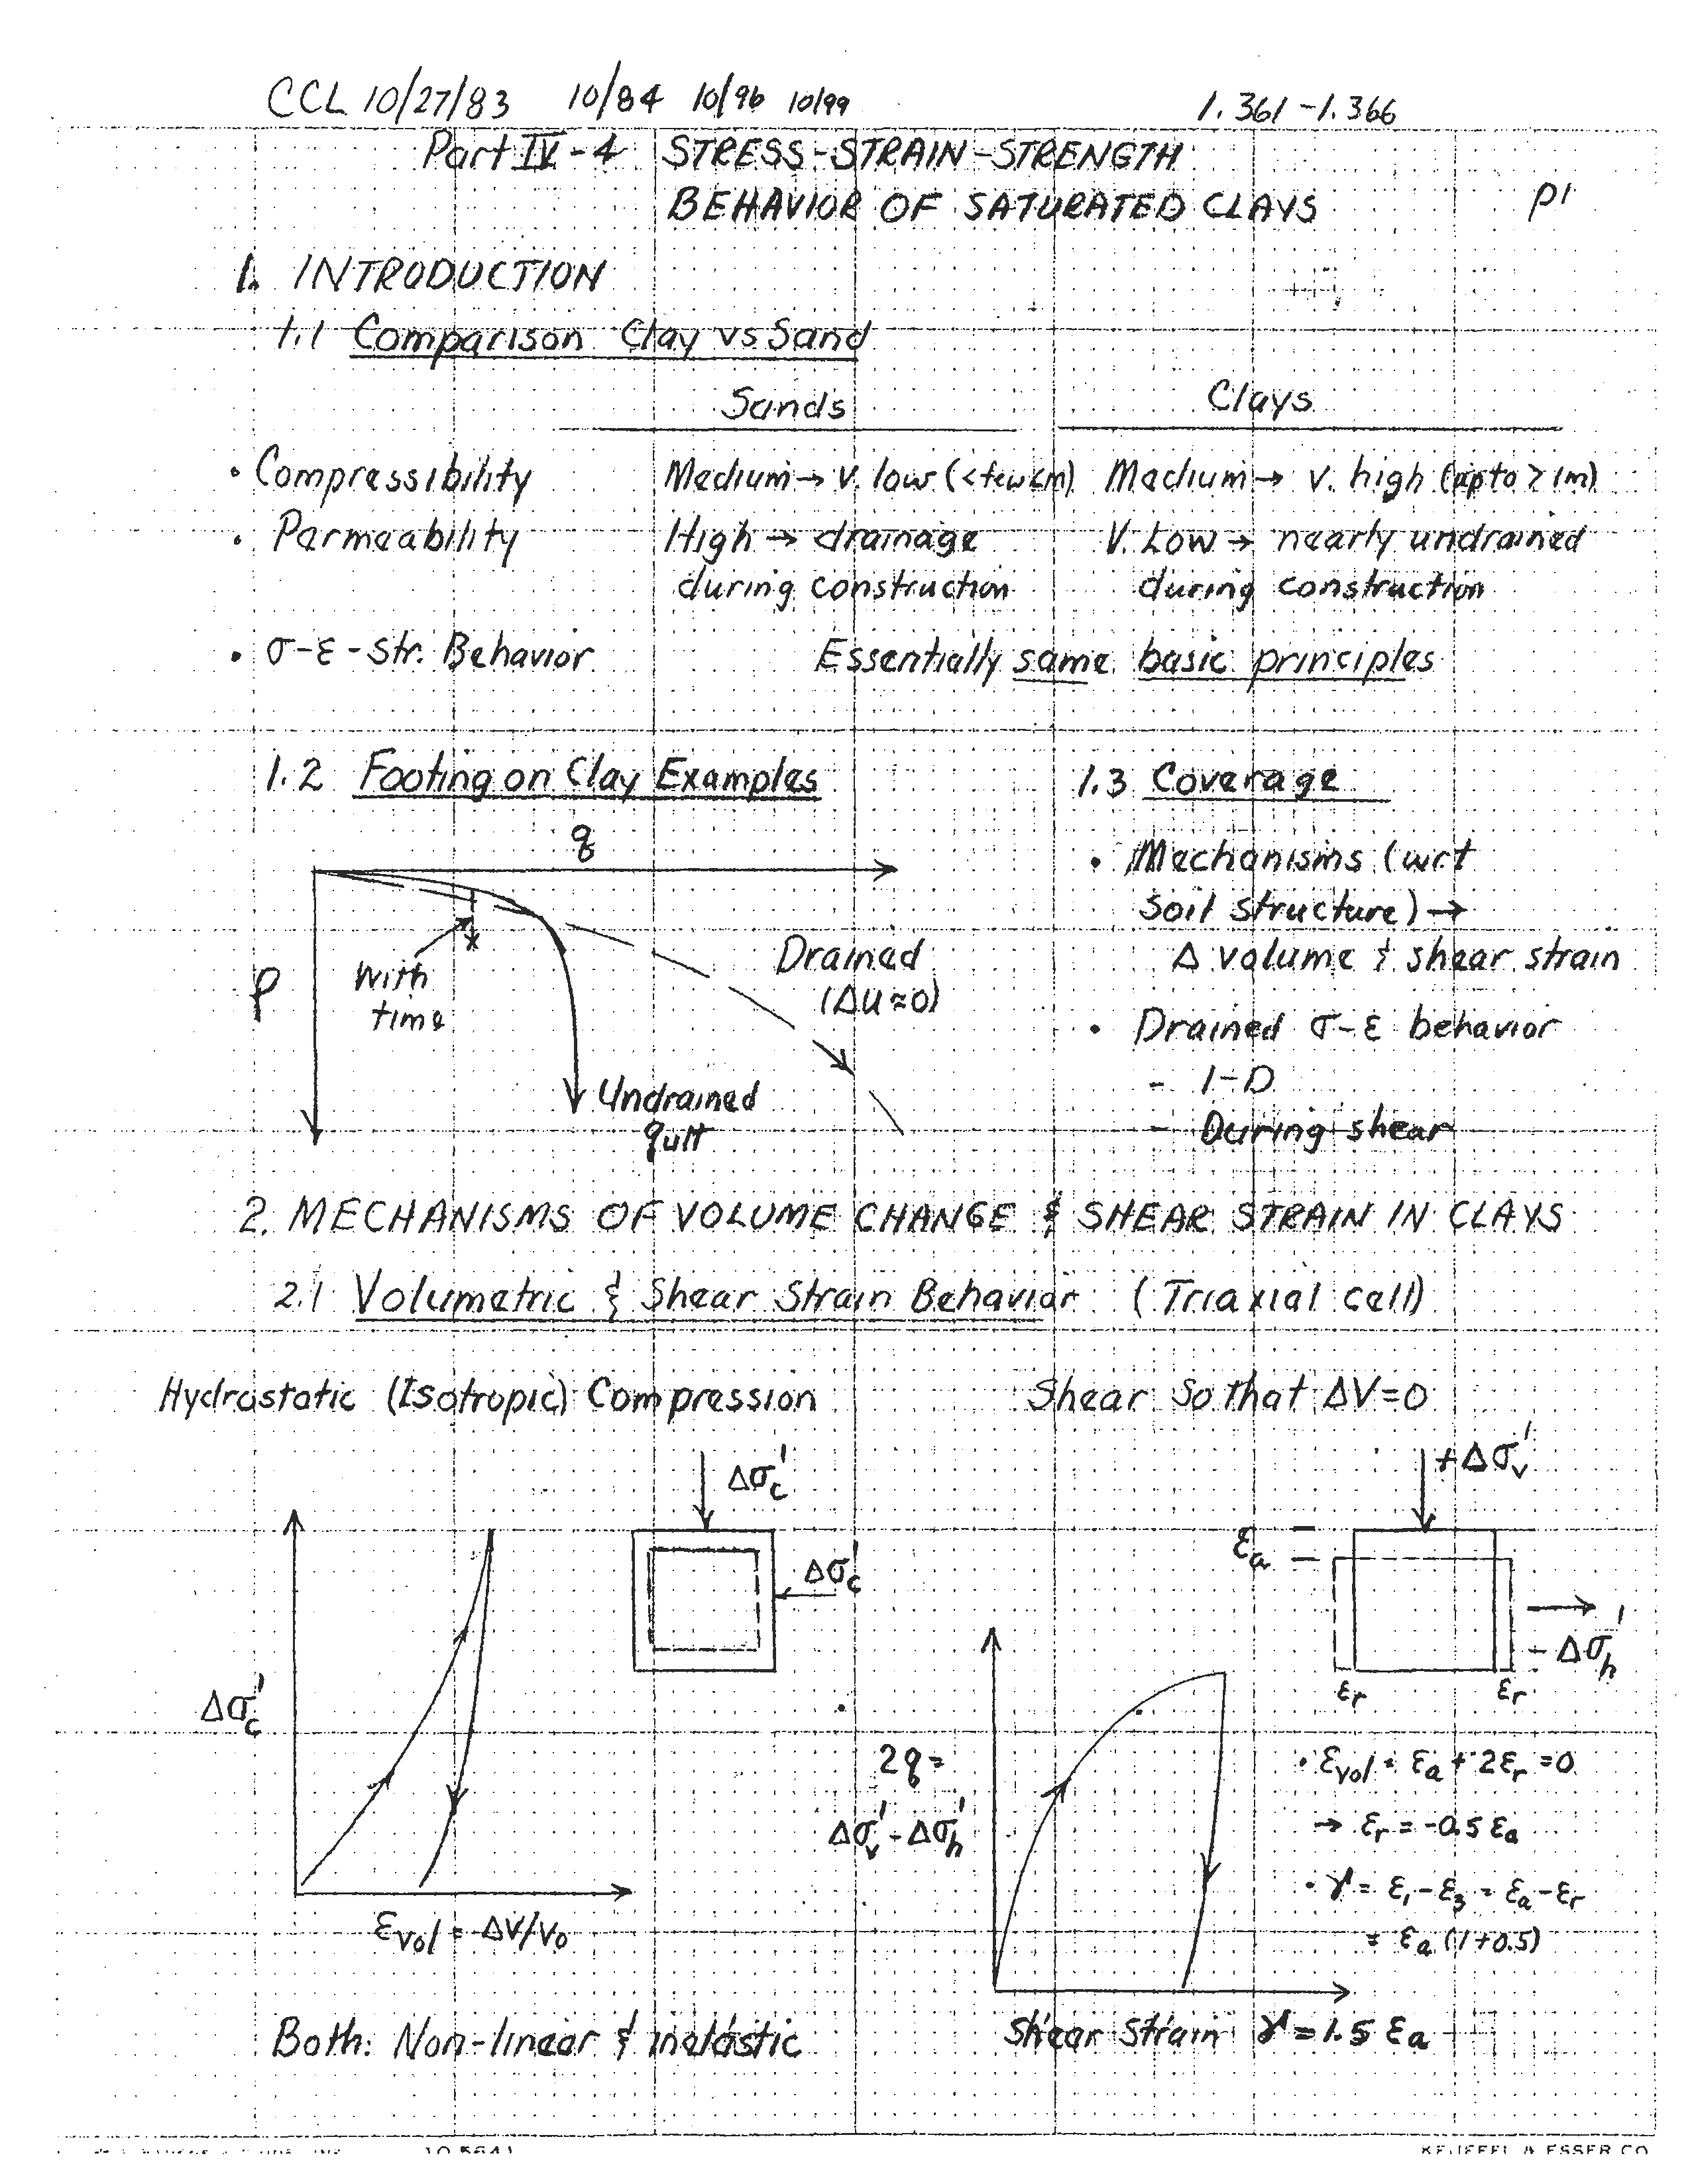 CCL 10/27/83 10/84 10/96 10/99 1.361-1.366
Part IV-4 STRESS-STRAIN-STRENGTH
BEHAVIOR OF SATURATED CLAYS p1
1. INTRODUCTION
1.1 Comparison Clay vs Sand
Sands Clays
• Compressibility Medium → v. low (<few cm) Medium → v. high (up to > 1m)
• Permeability High → drainage V. Low → nearly undrained
during construction during construction
• σ-ε-Str. Behavior Essentially same basic principles
1.2 Footing on Clay Examples
q
ρ
With
time
Drained
(Δu≈0)
Undrained
qult
1.3 Coverage
• Mechanisms (wrt
soil structure) →
Δ volume & shear strain
• Drained σ-ε behavior
- 1-D
- During shear
2. MECHANISMS OF VOLUME CHANGE & SHEAR STRAIN IN CLAYS
2.1 Volumetric & Shear Strain Behavior (Triaxial cell)
Hydrostatic (Isotropic) Compression
Δσc'
Δσc'
Δσc'
εvol = ΔV/V0
Both: Non-linear & inelastic
Shear So that ΔV=0
+Δσv'
εa
-Δσh'
εr εr
2q =
Δσv' - Δσh'
• εvol = εa + 2εr = 0
→ εr = -0.5 εa
• γ = ε1 - ε3 = εa - εr
= εa (1+0.5)
Shear Strain γ = 1.5 εa
10 5641
KEUFFEL & ESSER CO